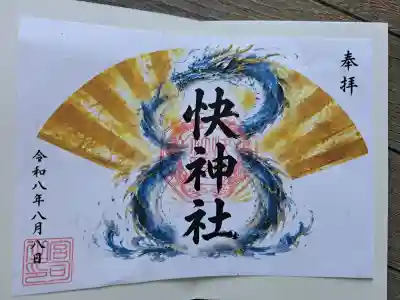 奉拝
快神社
令和八年八月八日